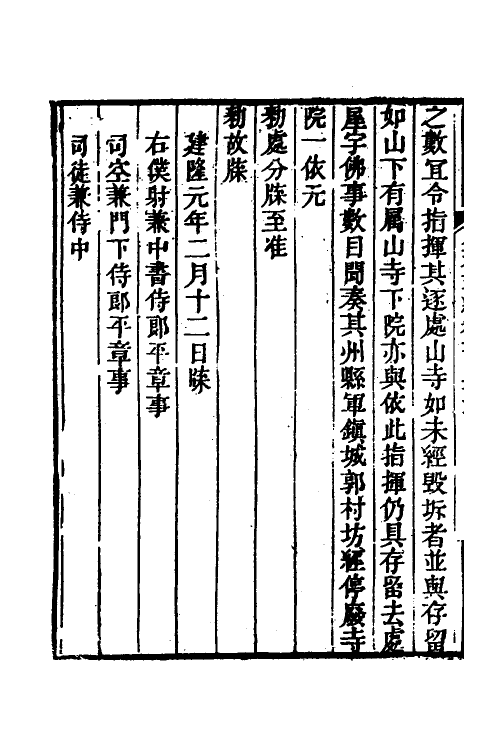 之數冝令指揮其逐處山寺如未經毀坼者並與存留
如山下有属山寺下院亦與依此指揮仍具存留去處
屋字佛事數目聞奏其州縣軍鎮城郭村坊經停廢寺
院一依元
勑處分牒至准
勑故牒
建隆元年二月十二日牒
右僕射兼中書侍郎平章事
司空兼門下侍郎平章事
司徒兼侍中